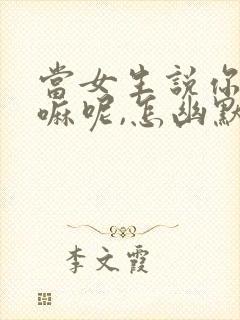 當女生說你
嘛呢,怎幽默
李文霞